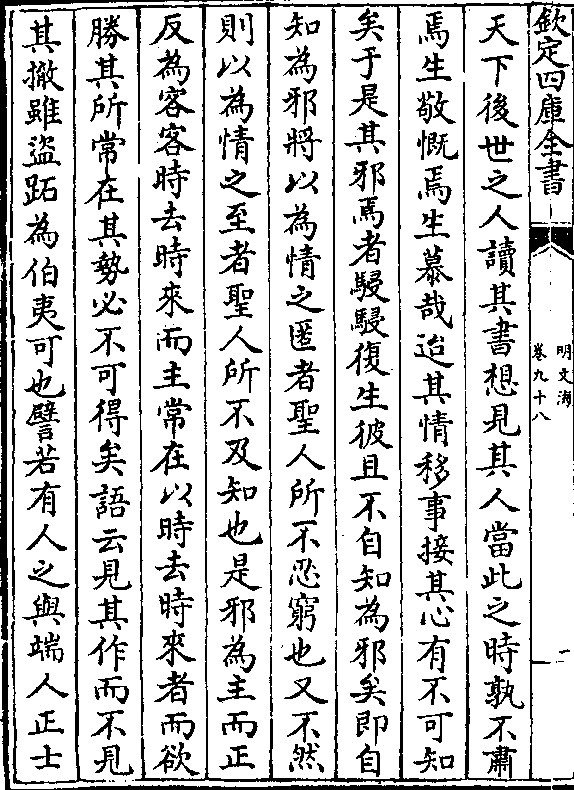 欽定四庫全書
明文海
卷九十八
二
天下後世之人讀其書想見其人當此之時孰不肅
焉生敬慨焉生慕哉迨其情移事接其心有不可知
矣于是其邪焉者駸駸復生彼且不自知為邪矣即自
知為邪將以為情之匿者聖人所不忍窮也又不然
則以為情之至者聖人所不及知也是邪為主而正
反為客客時去時來而主常在以時去時來者而欲
勝其所常在其勢必不可得矣語云見其作而不見
其撤雖盜跖為伯夷可也譬若有人之與端人正士